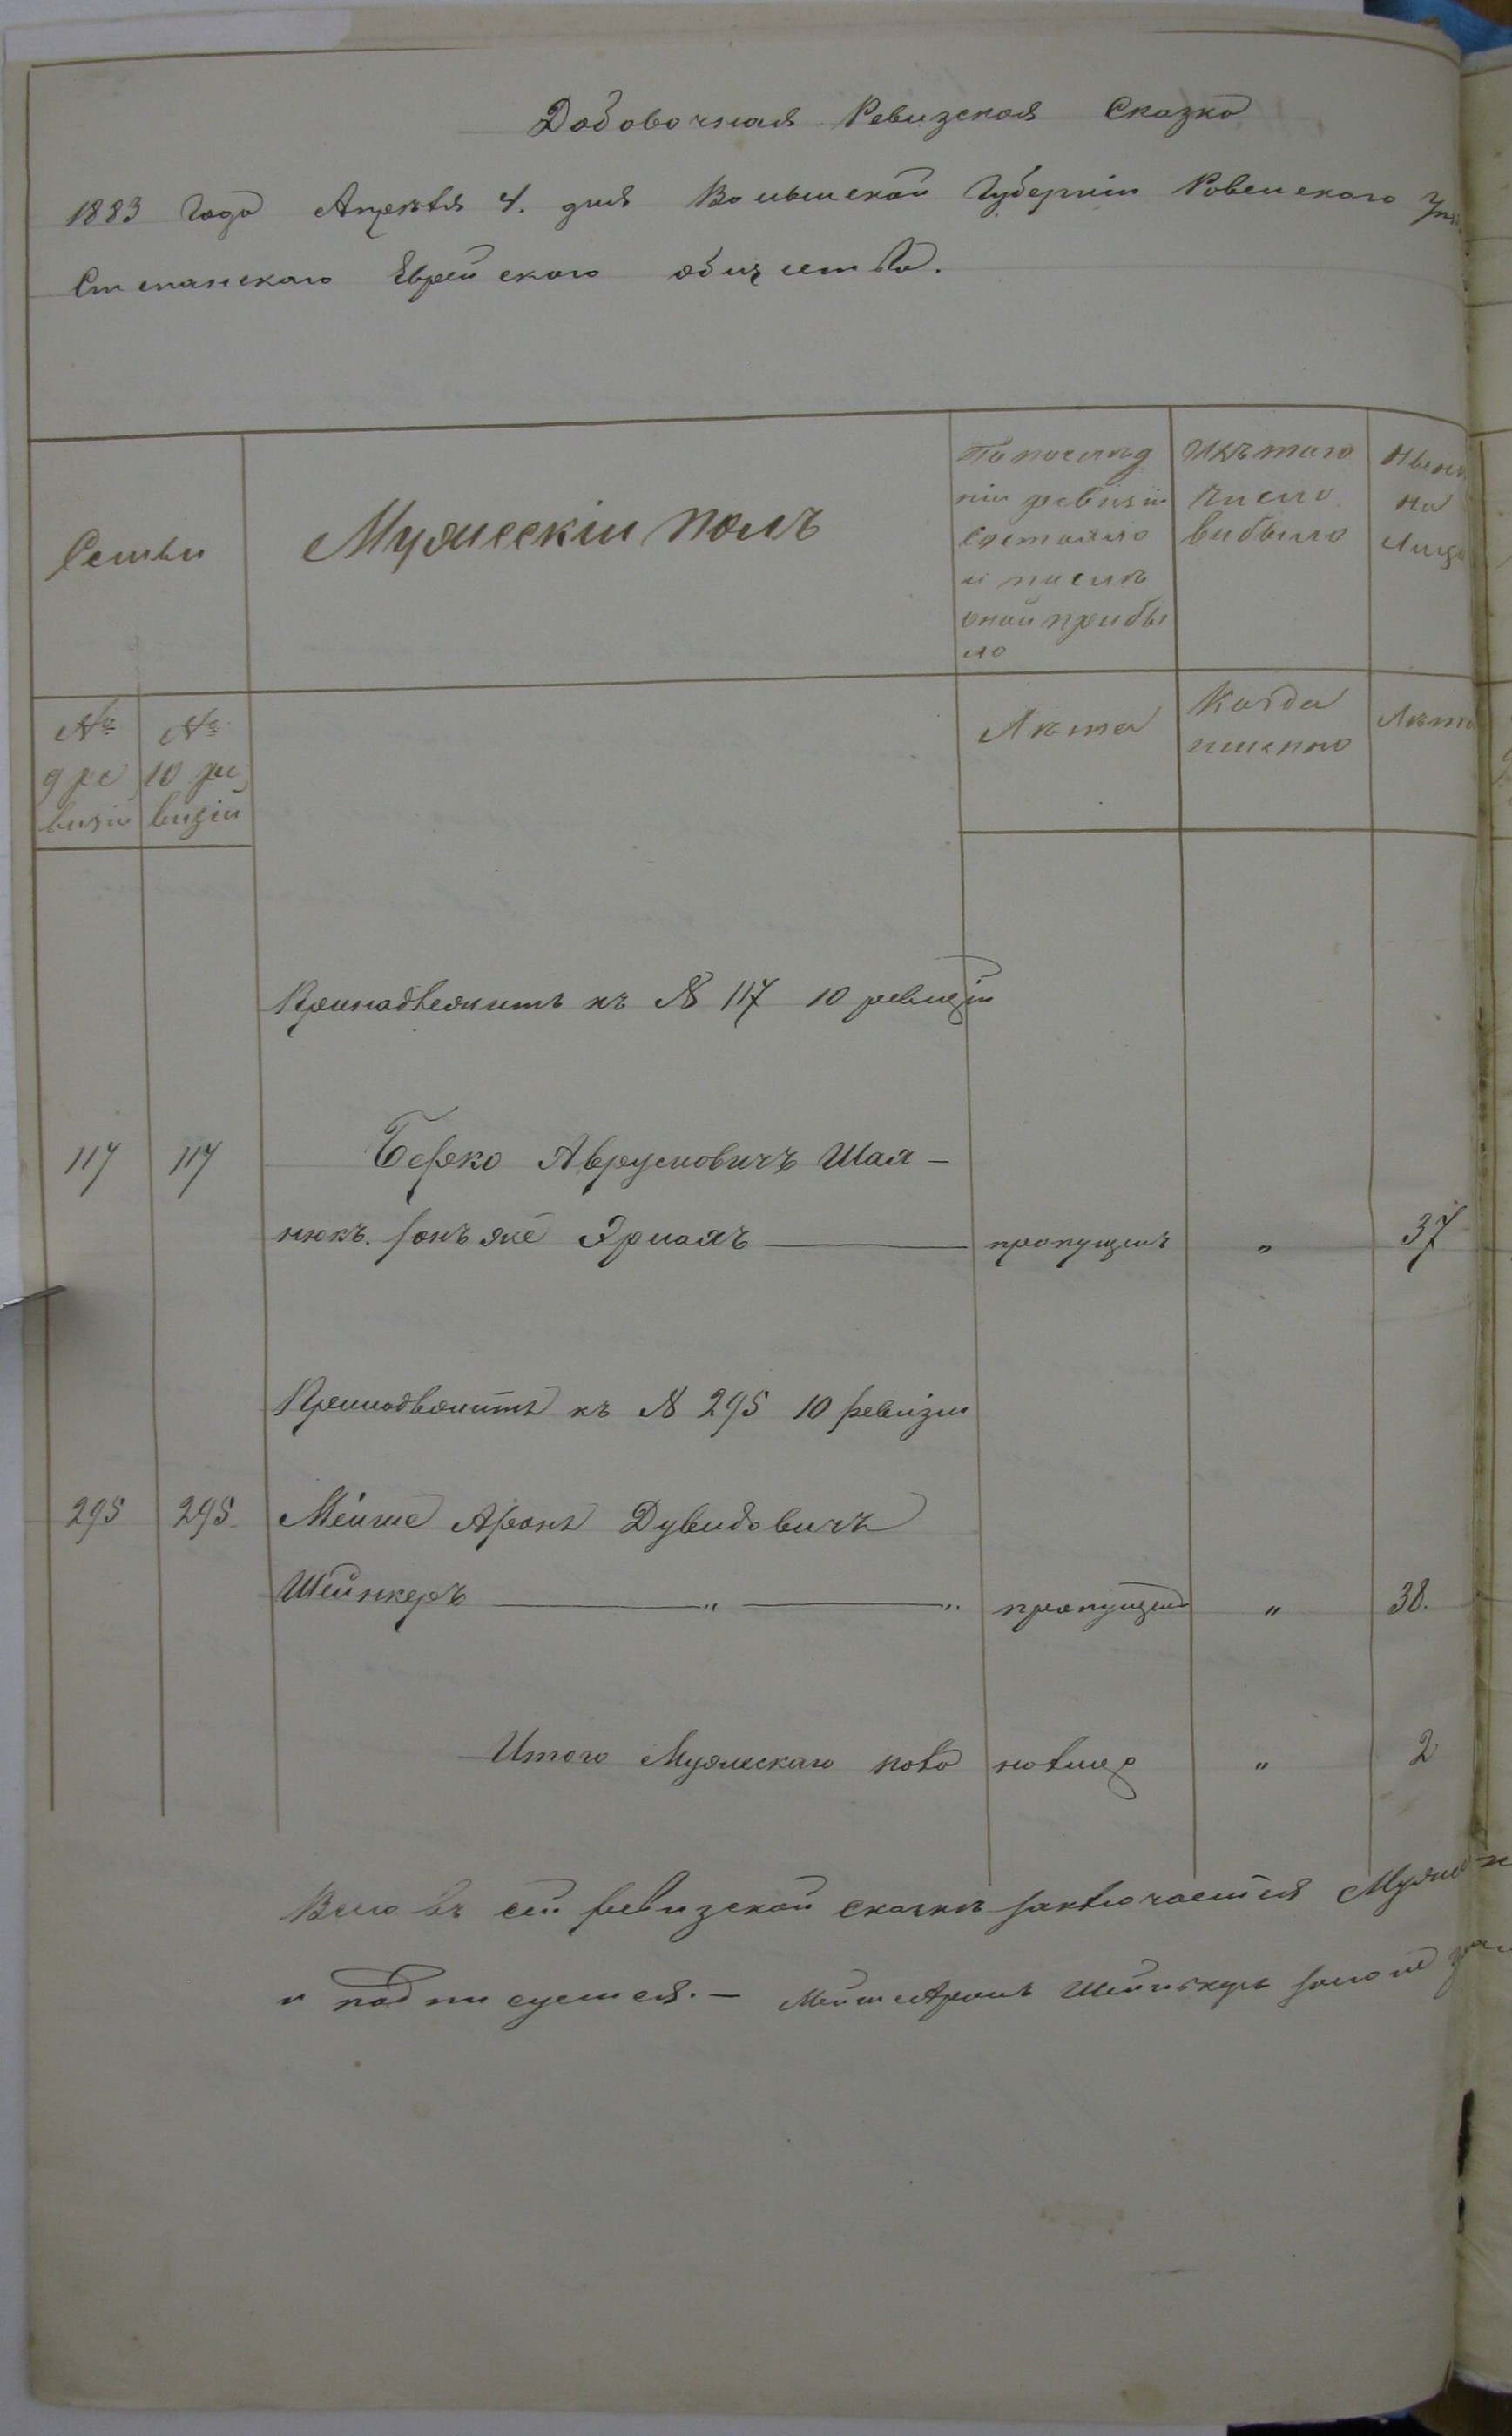 Добовочная Ревизская Сказка
1883 года Апрѣля 4. дня Волынской Губерніи Ровенскаго
Степанскаго Еврейскаго общества.
Семьи
Мужескій полъ
По послѣд
ніи ревизіи
состояло
и послѣ
оной прибы
ло
Изъ того
число
выбыло
Нынѣ
на
лицо
№ 9 ре
визіи
№ 10 ре
визіи
Лѣта
Когда
именно
Лѣта
Принадлежитъ къ № 117 10 ревизіи
117 117 Берко Аврумовичъ Шая-
нюкъ. Онъ же пропущенъ " 37
Принадлежитъ къ № 295 10 ревизіи
295 295 Мейше Аронъ Дувидовичъ
Шейнкеръ " " пропущенъ " 38.
Итого Мужескаго пола налицо " 2
Всего въ сей ревизской сказкѣ заключается
и подписуемся. — Мейше Аронъ Шейнкеръ